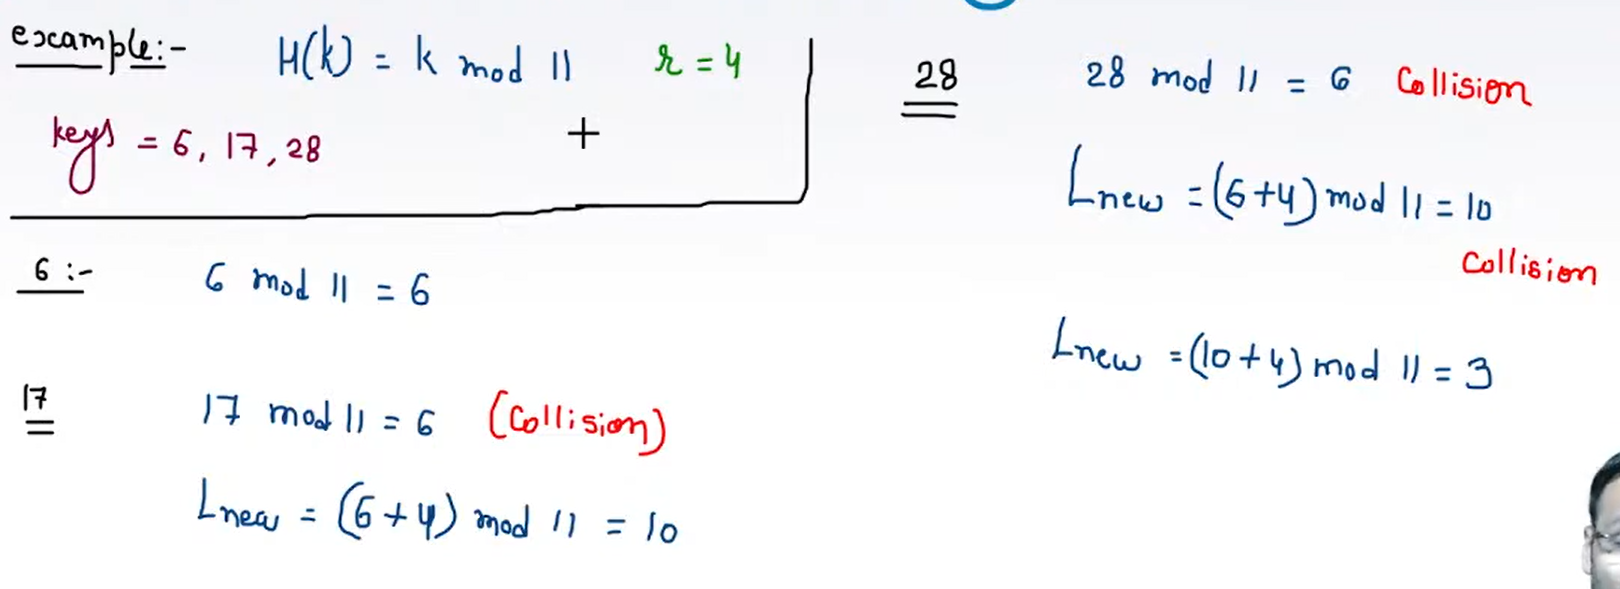 example:- H(k) = k mod 11 r = 4
keys = 6, 17, 28
6 :- 6 mod 11 = 6
17 17 mod 11 = 6 (Collision)
Lnew = (6+4) mod 11 = 10
28 28 mod 11 = 6 Collision
Lnew = (6+4) mod 11 = 10
Collision
Lnew = (10+4) mod 11 = 3